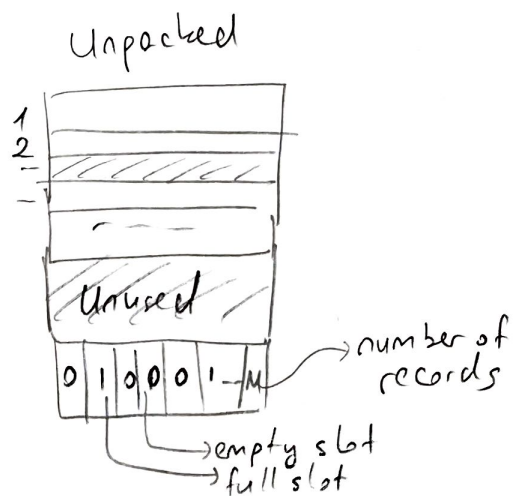 Unpacked
1
2
-
-
Unused
0 1 0 0 0 1 - M
number of
records
empty slot
full slot